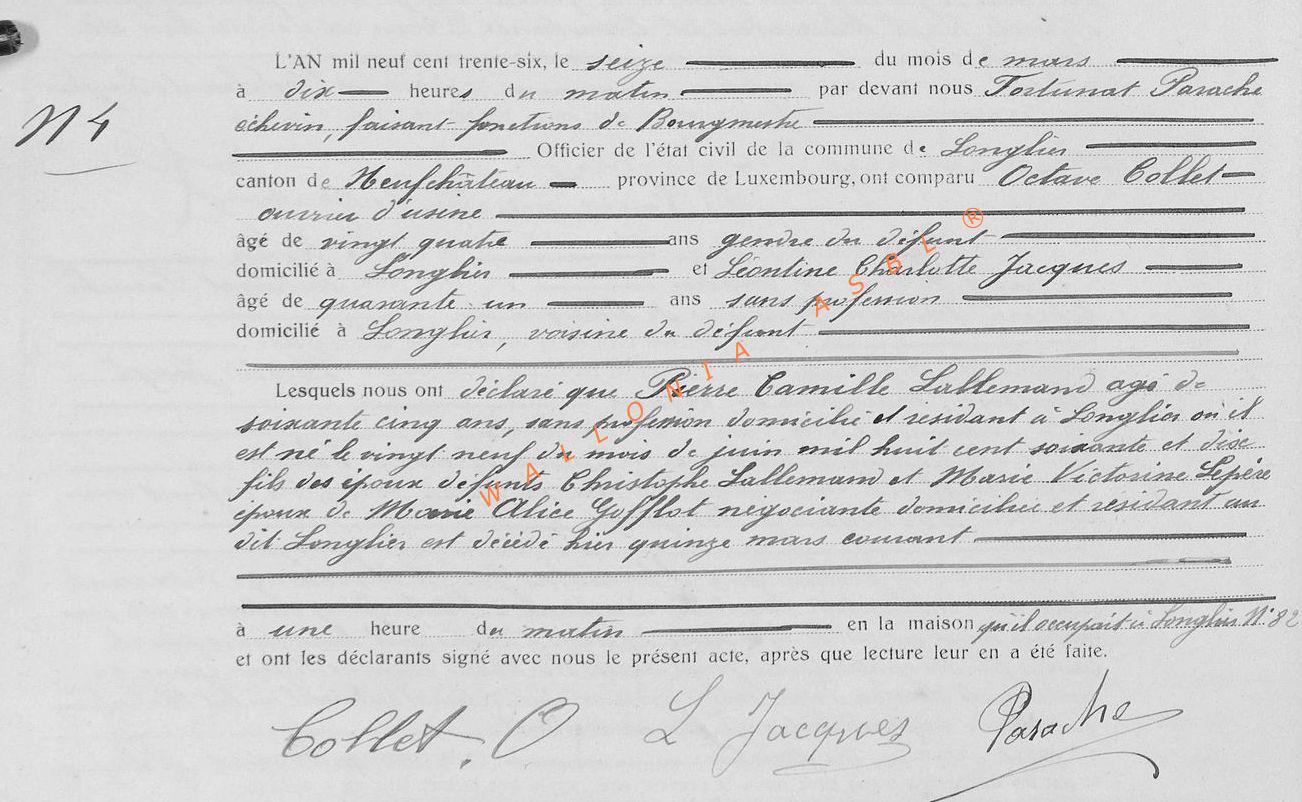 N 4
L'AN mil neuf cent trente-six, le seize du mois de mars
à dix heures du matin par devant nous Fortunat Parache
échevin, faisant fonctions de Bourgmestre
Officier de l'état civil de la commune de Longlier
canton de Neufchâteau province de Luxembourg, ont comparu Octave Collet
ouvrier d'usine
âgé de vingt quatre ans gendre du défunt
domicilié à Longlier et Léontine Charlotte Jacques
âgé de quarante un ans sans profession
domicilié à Longlier, voisine du défunt
Lesquels nous ont déclaré que Pierre Camille Lallemand agé de
soixante cinq ans, sans profession domicilié et residant à Longlier où il
est né le vingt neuf du mois de juin mil huit cent soixante et dix
fils des époux défunts Christophe Lallemand et Marie Victorine Lepère
époux de Marie Alice Gofflot négociante domiciliée et residant au
dit Longlier est décédé hier quinze mars courant
à une heure du matin en la maison qu'il occupait à Longlier N° 82
et ont les déclarants signé avec nous le présent acte, après que lecture leur en a été faite.
Collet, O L Jacques Parache
WALLONIA ASBL ®